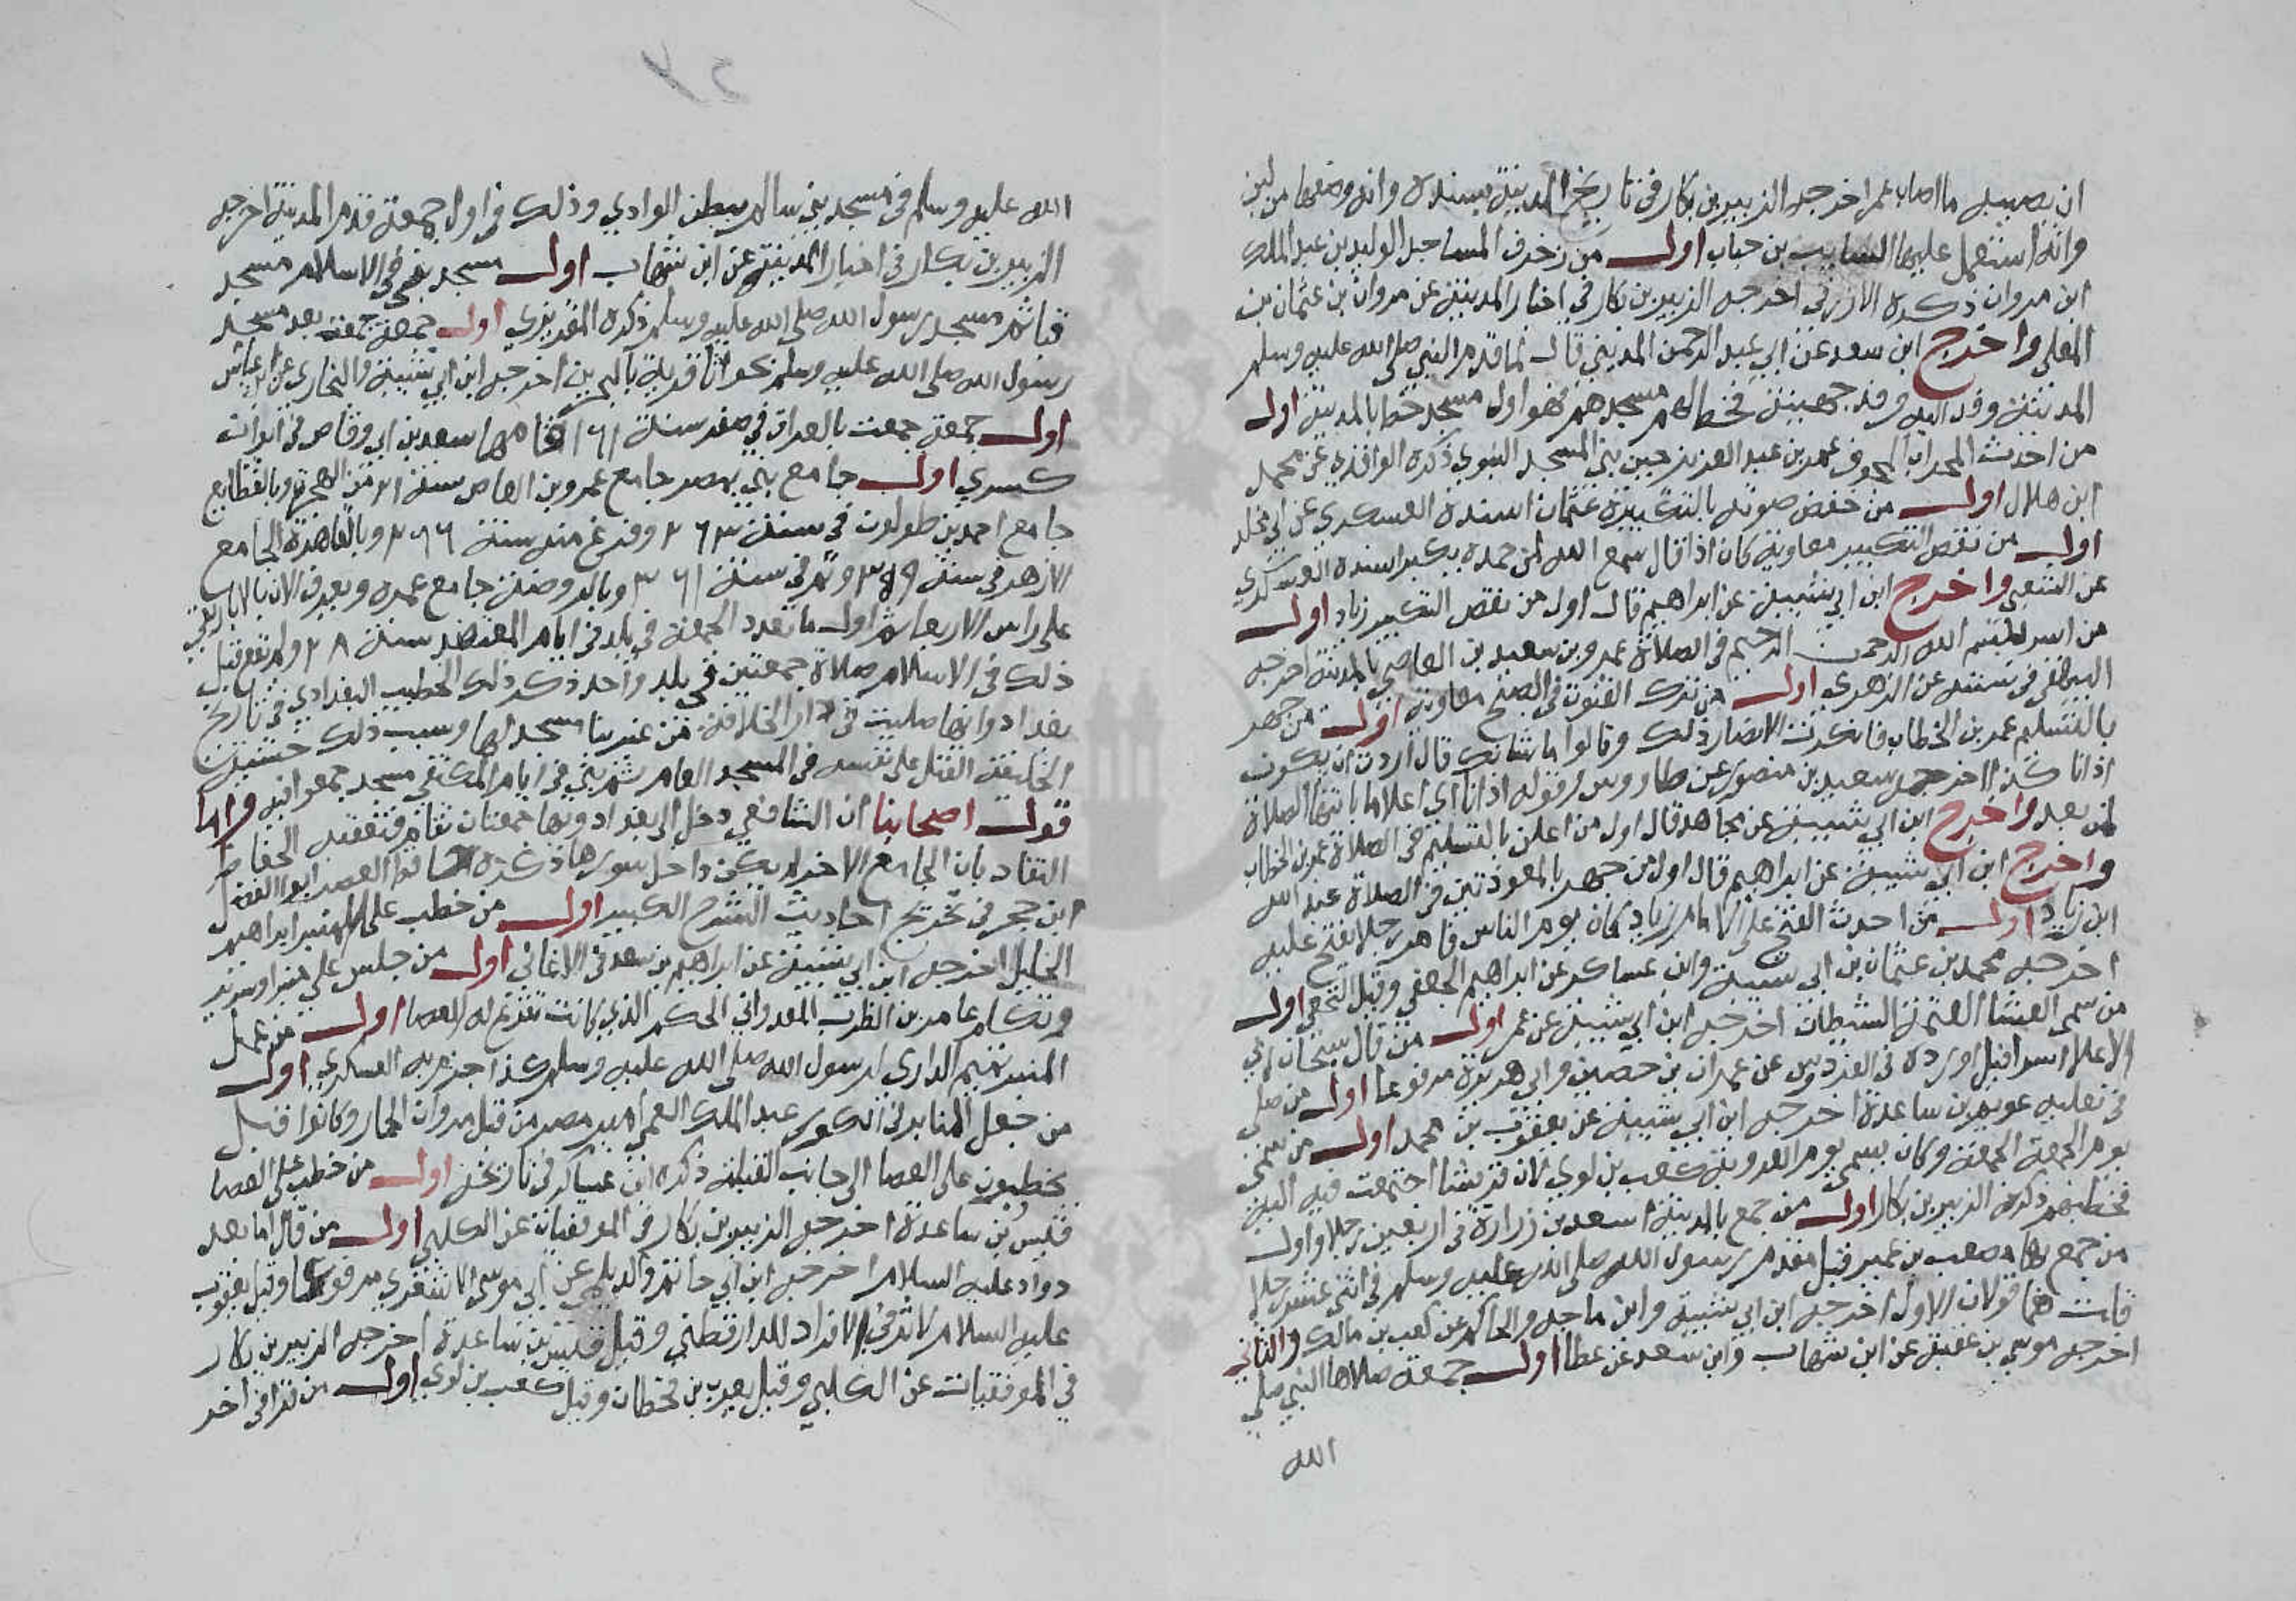 ان يصيبه ما اصاب عمر اخرجه الزبير بن بكار في تاريخ المدينة بسنده وانه وضعها من لبن
وانه استعمل عليها السايب بن خباب اول من زخرف المساجد الوليد بن عبد الملك
ابن مروان ذكره الازرقي اخرجه الزبير بن بكار في اخبار المدينة عن مروان بن عثمان بن
المعلي واخرج ابن سعد عن ابي عبد الرحمن المديني قال لما قدم النبي صلى الله عليه وسلم
المدينة وفد اليه وفد جهينة فخط لهم مسجدهم فهو اول مسجد خط بالمدينة اول
من احدث المحراب المجوف عمر بن عبد العزيز حين بني المسجد النبوي ذكره الواقدي عن محمد
ابن هلال اول من خفض صوته بالتكبيرة عثمان اسنده العسكري عن ابي مجلد
اول من نقص التكبير معاوية كان اذا قال سمع الله لمن حمده يكبر اسنده العسكري
عن الشعبي واخرج ابن ابي شيبة عن ابراهيم قال اول من نقص التكبير زياد اول
من اسر بسم الله الرحمن الرحيم في الصلاة عمرو بن سعيد بن العاصي بالمدينة اخرجه
البيهقي في سننه عن الزهري اول من ترك القنوت في الصبح معاوية اول من جهر
بالتسليم عمر بن الخطاب فانكرت الانصار ذلك وقالوا ما شانك قال اردت ان يكون
اذانا كذا اخرجه سعيد بن منصور عن طاووس وقوله اذانا اي اعلاما بانتها الصلاة
لمن بعد واخرج ابن ابي شيبة عن مجاهد قال اول من اعلن بالتسليم في الصلاة عمر بن الخطاب
واخرج ابن ابي شيبة عن ابراهيم قال اول من جهر بالمعوذتين في الصلاة عبد الله
ابن زياد اول من احدث الفتح على الامام زياد كان يوم الناس فامر رجلا يفتح عليه
اخرجه محمد بن عثمان بن ابي شيبة وابن عساكر عن ابراهيم الجعفي وقيل النخعي اول
من سمي العشا العتمة الشيطان اخرجه ابن ابي شيبة عن عمر اول من قال سبحان ربي
الاعلا اسرافيل اورده في الفردوس عن عمران بن حصين وابي هريرة مرفوعا اول من صلى
في نعليه عويم بن ساعدة اخرجه ابن ابي شيبة عن يعقوب بن محمد اول من سمي
يوم الجمعة الجمعة وكان يسمي يوم العروبة كعب بن لوي كان قريشا اجتمعت فيه اليه
فخطبهم ذكره الزبير بن بكار اول من جمع بالمدينة اسعد بن زرارة في اربعين رجلا واول
من جمع بها مصعب بن عمير قبل مقدم رسول الله صلى الله عليه وسلم في اثني عشر رجلا
قلت هما قولان الاول اخرجه ابن ابي شيبة وابن ماجه والحاكم عن كعب بن مالك والثاني
اخرجه موسي بن عقبة عن ابن شهاب وابن سعد عن عطا اول جمعة صلاها النبي صلى
الله
الله عليه وسلم في مسجد بني سالم ببطن الوادي وذلك في اول جمعة قدم المدينة اخرجه
الزبير بن بكار في اخبار المدينة عن ابن شهاب اول مسجد بني في الاسلام مسجد
قبا ثم مسجد رسول الله صلى الله عليه وسلم ذكره المقريزي اول جمعة جمعت بعد مسجد
رسول الله صلى الله عليه وسلم بجواثا قرية بالبحرين اخرجه ابن ابي شيبة والبخاري عن ابن عباس
اول جمعة جمعت بالعراق في صفر سنة ١٦ اقامها سعد بن ابي وقاص في ايوان
كسري اول جامع بني بمصر جامع عمرو بن العاص سنة ٢١ من الهجرة وبالقطايع
جامع احمد بن طولون في سنة ٢٦٣ وفرغ منه سنة ٢٦٦ وبالقاهرة الجامع
الازهر في سنة ٣٥٩ وتم في سنة ٣٦١ وبالروضة جامع عمره ويعرف الان بالاباريقي
على راس الاربعماية اول ما تعدد الجمعة في بلد في ايام المعتضد سنة ٢٨ ولم يقع قبل
ذلك في الاسلام صلاة جمعتين في بلد واحد ذكر ذلك الخطيب البغدادي في تاريخ
بغداد وانها صليت في دار الخلافة من غير بنا مسجد لها وسبب ذلك خشية
الخليفة القتل على نفسه في المسجد العام ثم بني في ايام المكتفي مسجد جمعوا فيه واما
قول اصحابنا ان الشافعي دخل الى بغداد وبها جمعتان تقام فتعقبه الحفاظ
النقاد بان الجامع الاخر لم يكن داخل سورها ذكره حافظ العصر ابو الفضل
ابن حجر في تخريج احاديث الشرح الكبير اول من خطب على المنبر ابراهيم
الخليل اخرجه ابن ابي شيبة عن ابراهيم بن سعد في الاغاني اول من جلس على منبر او سرير
وتكلم عامر بن الظرب العدواني الحكم الذي كانت تقرع له العصا اول من عمل
المنبر تميم الداري لرسول الله صلى الله عليه وسلم كذا جزم به العسكري اول
من جعل المنابر في الكور عبد الملك العمي امير مصر من قبل مروان الحمار وكانوا قبل
يخطبون على العصا الى جانب القبلة ذكره ابن عساكر في تاريخه اول من خطب على العصا
قيس بن ساعدة اخرجه الزبير بن بكار في الموفقيات عن الكلبي اول من قال اما بعد
دواد عليه السلام اخرجه ابن ابي حاتم والديلمي عن ابي موسي الاشعري مرفوعا وقيل يعقوب
عليه السلام لاثر في الافراد للدارقطني وقيل قيس بن ساعدة اخرجه الزبير بن بكار
في الموفقيات عن الكلبي وقيل يعرب بن قحطان وقيل كعب بن لوي اول من قرا في اخر